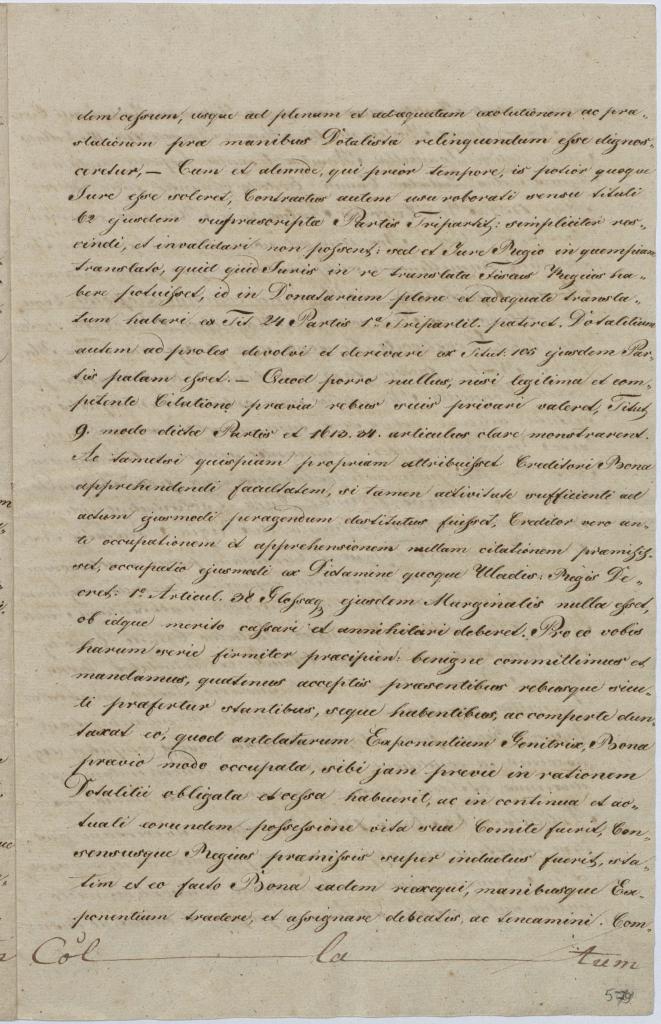 dem cessum, usque ad plenum et adaequatam exolutionem ac prae„
stationem prae manibus Dotalistae relinquendum esse dignos„
ceretur, — Cum et aliunde, qui prior tempore, is potior quoque
Jure esse soleret, Contractus autem usu roborati sensu tituli
62 ejusdem suprascriptae Partis Tripartit: simpliciter res„
cindi, et invalidari non possent; sed et Jure Regio in quempiam
translato, quid quid Juris in re translata Fiscus Regius ha„
bere potuisset, id in Donatarium plene et adaequate transla„
tum haberi ex Tit 24 Partis 1ae Tripartit. pateret. Dotalitium
autem ad proles devolvi et derivari ex Titul: 105 ejusdem Par„
tis palam esset. — Quod porro nullus, nisi legitima et com„
petente Citatione praevia rebus suis privari valeret, Titul,
9. modo dictae Partis et 1613. 34. articulus clare monstrarent.
Ac tametsi quispiam propriam attribuisset Creditori Bona
apprehendendi facultatem, si tamen activitate sufficienti ad
actum ejusmodi peragendum destitutus fuisset, Creditor vero an„
te occupationem et apprehensionem nullam citationem praemisis„
set, occupatio ejusmodi ex Dictamine quoque Uladis: Regis De„
cret: 1o Articul. 38 Glossaeq ejusdem Marginalis nulla esset,
ob idque merito cassari et annihilari deberet. Pro eo vobis
harum serie firmiter praecipien: benigne committimus et
mandamus, quatenus acceptis praesentibus rebusque sicu„
ti praefertur stantibus, seque habentibus, ac comperto dun„
taxat eo, quod antelatarum Exponentium Genitrix, Bona
praevio modo occupata, sibi jam previe in rationem
Dotalitii obligata et cessa habuerit, ac in continua et ac„
tuali eorundem possessione vita sua Comite fuerit, Con„
sensusque Regius praemissis super inductus fuerit, sta„
tim et eo facto Bona eadem reexequi, manibusque Ex„
ponentium tradere, et assignare debeatis, ac teneamini. Com„
Col la tum